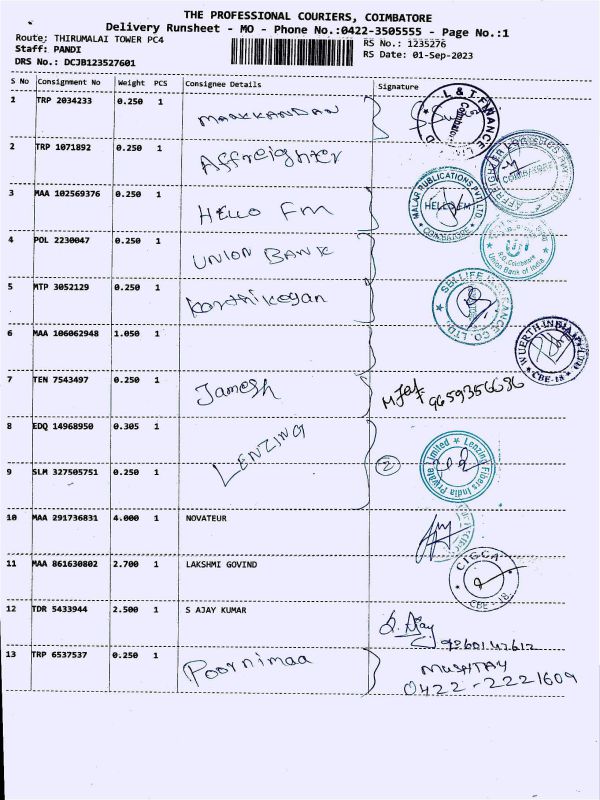 THE PROFESSIONAL COURIERS, COIMBATORE
Delivery Runsheet - MO - Phone No.:0422-3505555 - Page No.:1
Route: THIRUMALAI TOWER PC4 RS No.: 1235276
Staff: PANDI RS Date: 01-Sep-2023
DRS No.: DCJB123527601
S No Consignment No Weight PCS Consignee Details Signature
1 TRP 2034233 0.250 1 L & T FINANCE
2 TRP 1071892 0.250 1 Affreighter
3 MAA 102569376 0.250 1 Hello FM MALAR PUBLICATIONS PVT LTD HELLO FM COIMBATORE
4 POL 2230047 0.250 1 UNION BANK Union Bank of India
5 MTP 3052129 0.250 1 Karthikeyan SBI LIFE CO. LTD.
6 MAA 106062948 1.050 1 WUERTH INDIA CBE-18
7 TEN 7543497 0.250 1 Jamesh 9659356696
8 EDQ 14968950 0.305 1 LENZING
9 SLM 327505751 0.250 1 2 Lenzing Fibers India Private Limited
10 MAA 291736831 4.000 1 NOVATEUR
11 MAA 861630802 2.700 1 LAKSHMI GOVIND CIGCA CBE-18
12 TDR 5433944 2.500 1 S AJAY KUMAR S. Ajay
13 TRP 6537537 0.250 1 Poornimaa MUSHTAY
0422-2221609